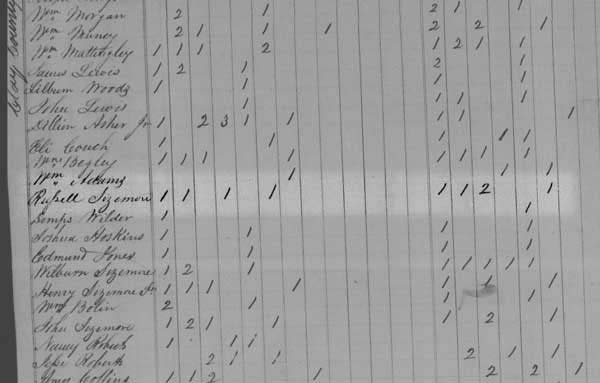 Clay County
Wm Morgan 2 1 2 1 1
Wm Muncy 2 1 1 1 2 2 1
Wm Mattingley 1 1 1 2 1 2 1 1
James Lewis 1 2 1 2 1
Tilburn Woods 1 1 1
John Lewis 1 1 1 1
Dillion Asher Jr 1 2 3 1 1 1 1 1
Eli Couch 1 1 1 1 1
Wm Begley 1 1 1 1 1 1 1 1
Wm Adams 1 1 1
Russell Sizemore 1 1 1 1 1 1 2 1
Wilder 1 1
Joshua Hoskins 1 1 1 1
Edmund Jones 1 1 1 1
Wilburn Sizemore 1 2 1 1 1 1 1 1
Henry Sizemore Sr 1 1 1 1 1 1
Wm Bolin 2 1 1 1
John Sizemore 1 2 1 1 1 2 1
Nancy Roberts 1 1 1
Roberts 2 1 1 2 1 1
Collins 1 1 2 1 2 2 1